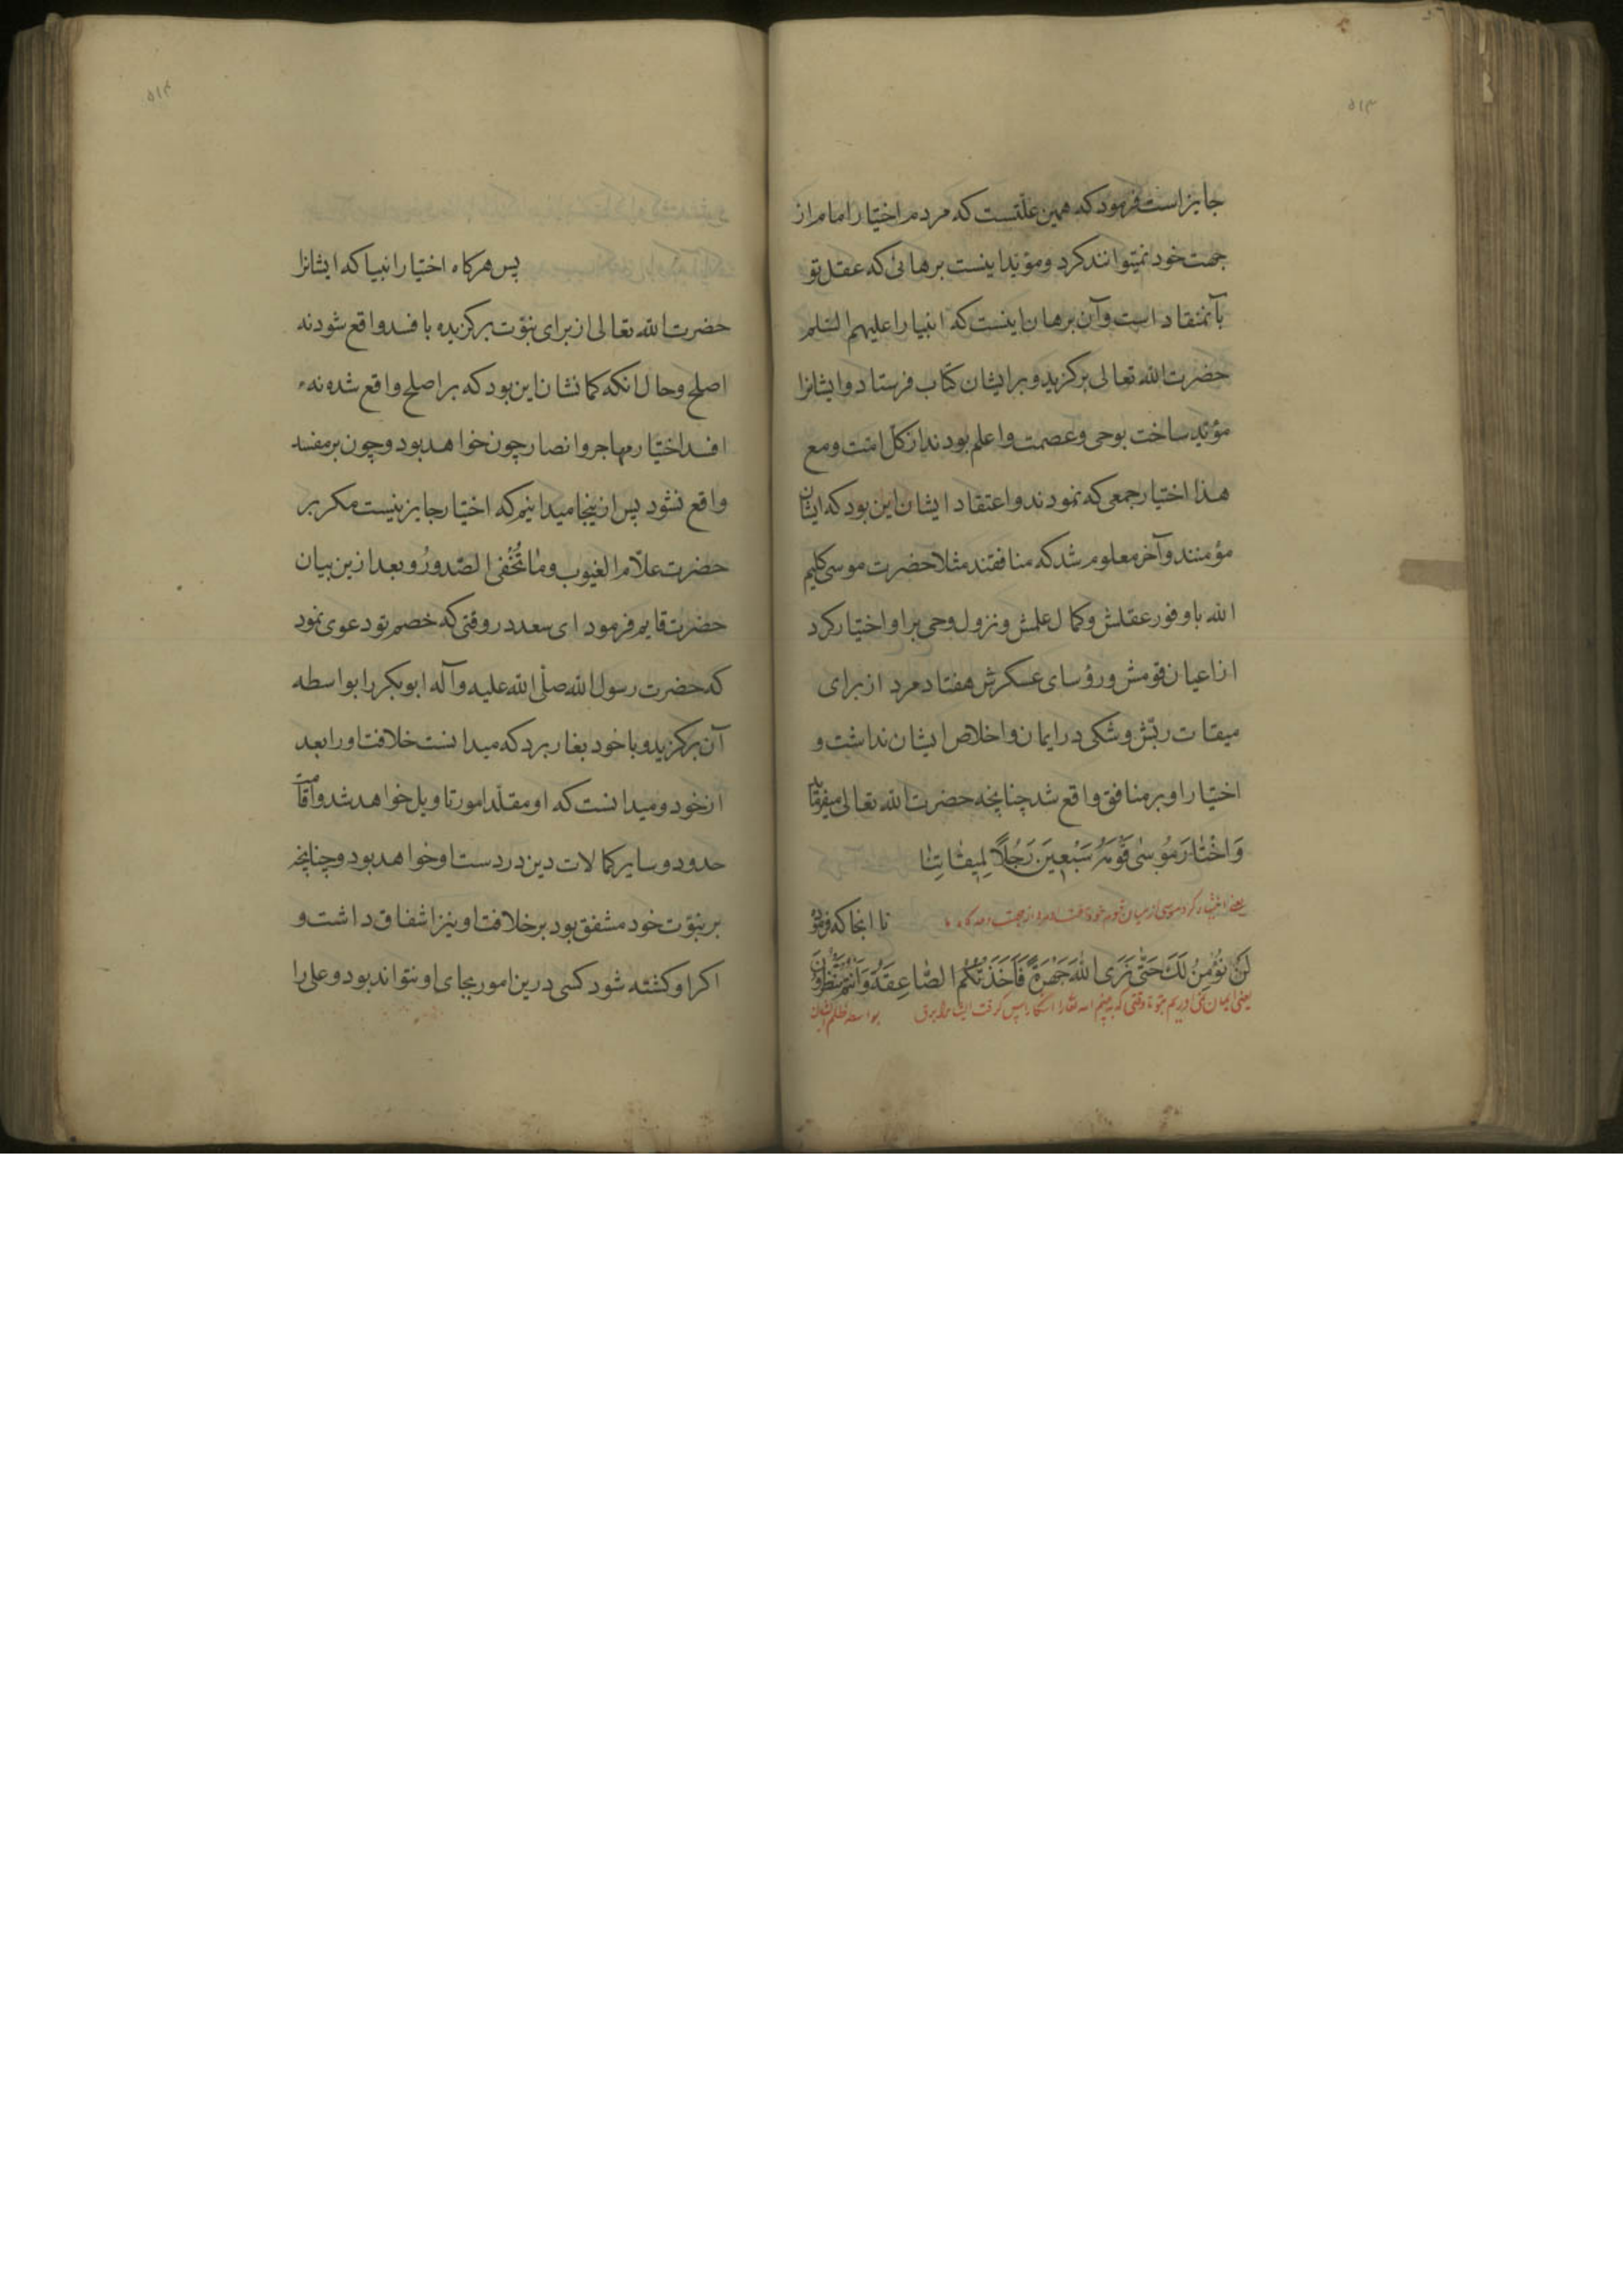 ۵۱۳
جایز است فرمود که همین علّتست که مردم اختیار امام از
جهت خود نمیتوانند کرد و مؤید اینست برهانی که عقل تو
بآن منقاد است و آن برهان اینست که انبیا را علیهم السلم
حضرت الله تعالی برگزید و بر ایشان کتاب فرستاد و ایشانرا
مؤید ساخت بوحی و عصمت و اعلم بودند از کل امت و مع
هذا اختیار جمعی که نمودند و اعتقاد ایشان این بود که ایشان
مؤمنند و آخر معلوم شد که منافقند مثلا حضرت موسی کلیم
الله با وفور عقلش و کمال علمش و نزول وحی بر او اختیار کرد
از اعیان قومش و رؤسای عسکرش هفتاد مرد از برای
میقات ربّش و شکی در ایمان و اخلاص ایشان نداشت و
اختیار او بر منافق واقع شد چنانچه حضرت الله تعالی میفرماید
وَاخْتٰارَ مُوسٰی قَوْمَهُ سَبْعِینَ رَجُلًا لِمِیقٰاتِنٰا
یعنی اختیار کرد موسی از میان قوم خود هفتاد مرد از جهت وعده گاه ما
تا انجا که فرمود
لَنْ نُؤْمِنَ لَکَ حَتّٰی نَرَی اللّٰهَ جَهْرَةً فَاَخَذَتْکُمُ الصّٰاعِقَةُ وَاَنْتُمْ تَنْظُرُونَ
یعنی ایمان نمی اوریم بتو تا وقتی که ببینیم الله تعالی را اشکارا پس گرفت ایشانرا برق بواسطه ظلم ایشان
۵۱۴
پس هرکاه اختیار انبیا که ایشانرا
حضرت الله تعالی از برای نبوّت برکزیده بافسد واقع شود نه
اصلح و حال انکه کمانشان این بود که بر اصلح واقع شده نه
افسد اختیار مهاجر و انصار چون خواهد بود و چون بر مفسد
واقع نشود پس ازینجا میدانیم که اختیار جایز نیست مکر بر
حضرت علّام الغیوب وَمٰا تُخْفی الصّدورُ و بعد ازین بیان
حضرت قایم فرمود ای سعد در وقتی که خصم تو دعوی نمود
که حضرت رسول الله صلّی الله علیه و آله ابوبکر را بواسطه
آن برکزید و با خود بغار برد که میدانست خلافت او را بعد
از خود و میدانست که او مقلّد امور تاویل خواهد شد و اقامت
حدود و سایر کمالات دین در دست او خواهد بود و چنانچه
بر نبوّت خود مشفق بود بر خلافت او نیز اشفاق داشت و
اکر او کشته شود کسی درین امور بجای او نتواند بود و علی را